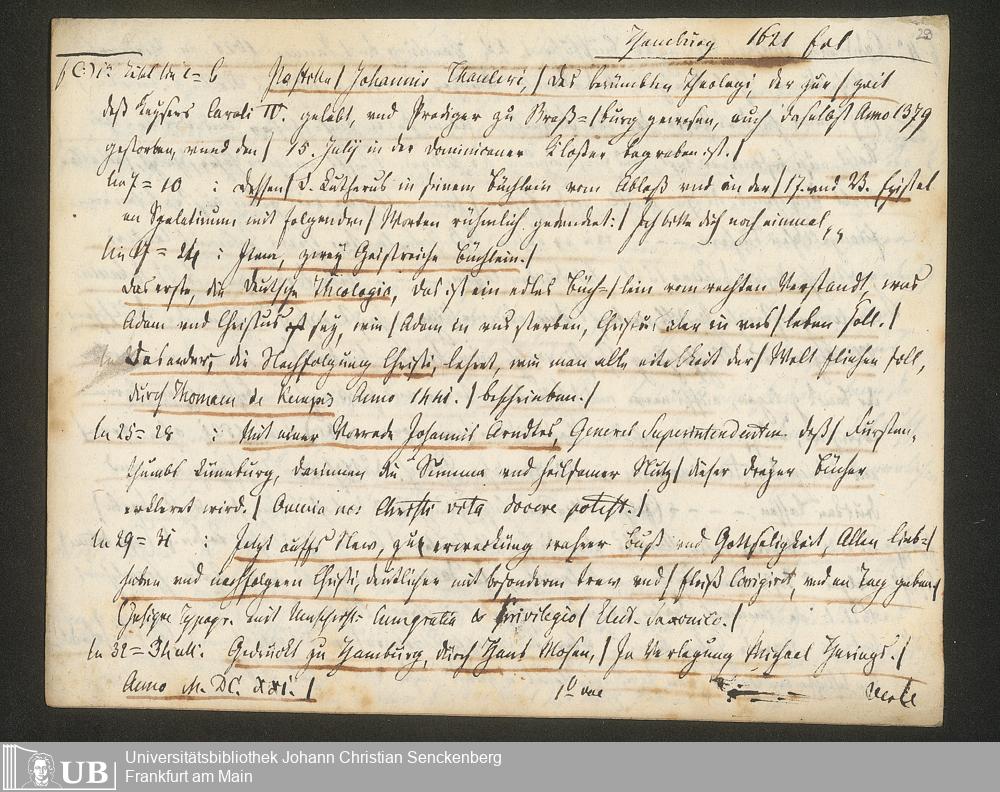 Hamburg 1621 fol
29
Titel Postilla / Johannis Thauleri, / des berümbten Theologi, der zur / zeit
deß Keysers Caroli IV. gelebt, vnd Prediger zu Straß= / burg gewesen, auch daselbst Anno 1379
gestorben, vnnd den / 15. Julij in der Dominicaner Kloster begraben ist. /
ln 7 = 10 : Dessen / D. Lutherus in seinem Büchlein vom Ablaß vnd in der / 17. vnd 23. Epistel
an Spalatinum mit folgenden / Worten rühmlich gedencket: / Ich bitte dich noch einmal
= 24 : Item, zwey Geistreiche Büchlein. /
Das erste, die Deutsche Theologia, das ist ein edles Büch= / lein vom rechten Verstandt, was
Adam vnd Christus sey, wie / Adam in vns sterben, Christus aber in vns / leben soll. /
Das ander, die Nachfolgung Christi, lehret, wie man alle eitelkeit der / Welt fliehen soll,
durch Thomam de Kempis Anno 1441. / beschrieben. /
ln 25 = 28 : Mit einer Vorrede Johannis Arndtes, General Superintendenten deß / Fürsten,
thumbs Lüneburg, darinnen die Summa vnd heilsamer Nutz / dieser dreyer Bücher
erkleret wird. / Omnia nos Christi vita docere potest. /
ln 29 = 31 : Jetzt auffs New, zur erweckung wahrer Buß vnd Gottseligkeit, Allen Lieb= /
haben vnd nachfolgern Christi, deutlicher mit besonderm trew vnd / fleiß Corrigirt, vnd an Tag geben /
Insigne Typogr. mit Umschrift: Cum gratia & Privilegio / Elect. Saxoniae. /
ln 32 = Gedruckt zu Hamburg, durch Hans Mosen, / In Verlegung Michael Herings. /
Anno M. DC. XXI. /
Universitätsbibliothek Johann Christian Senckenberg
Frankfurt am Main
UB